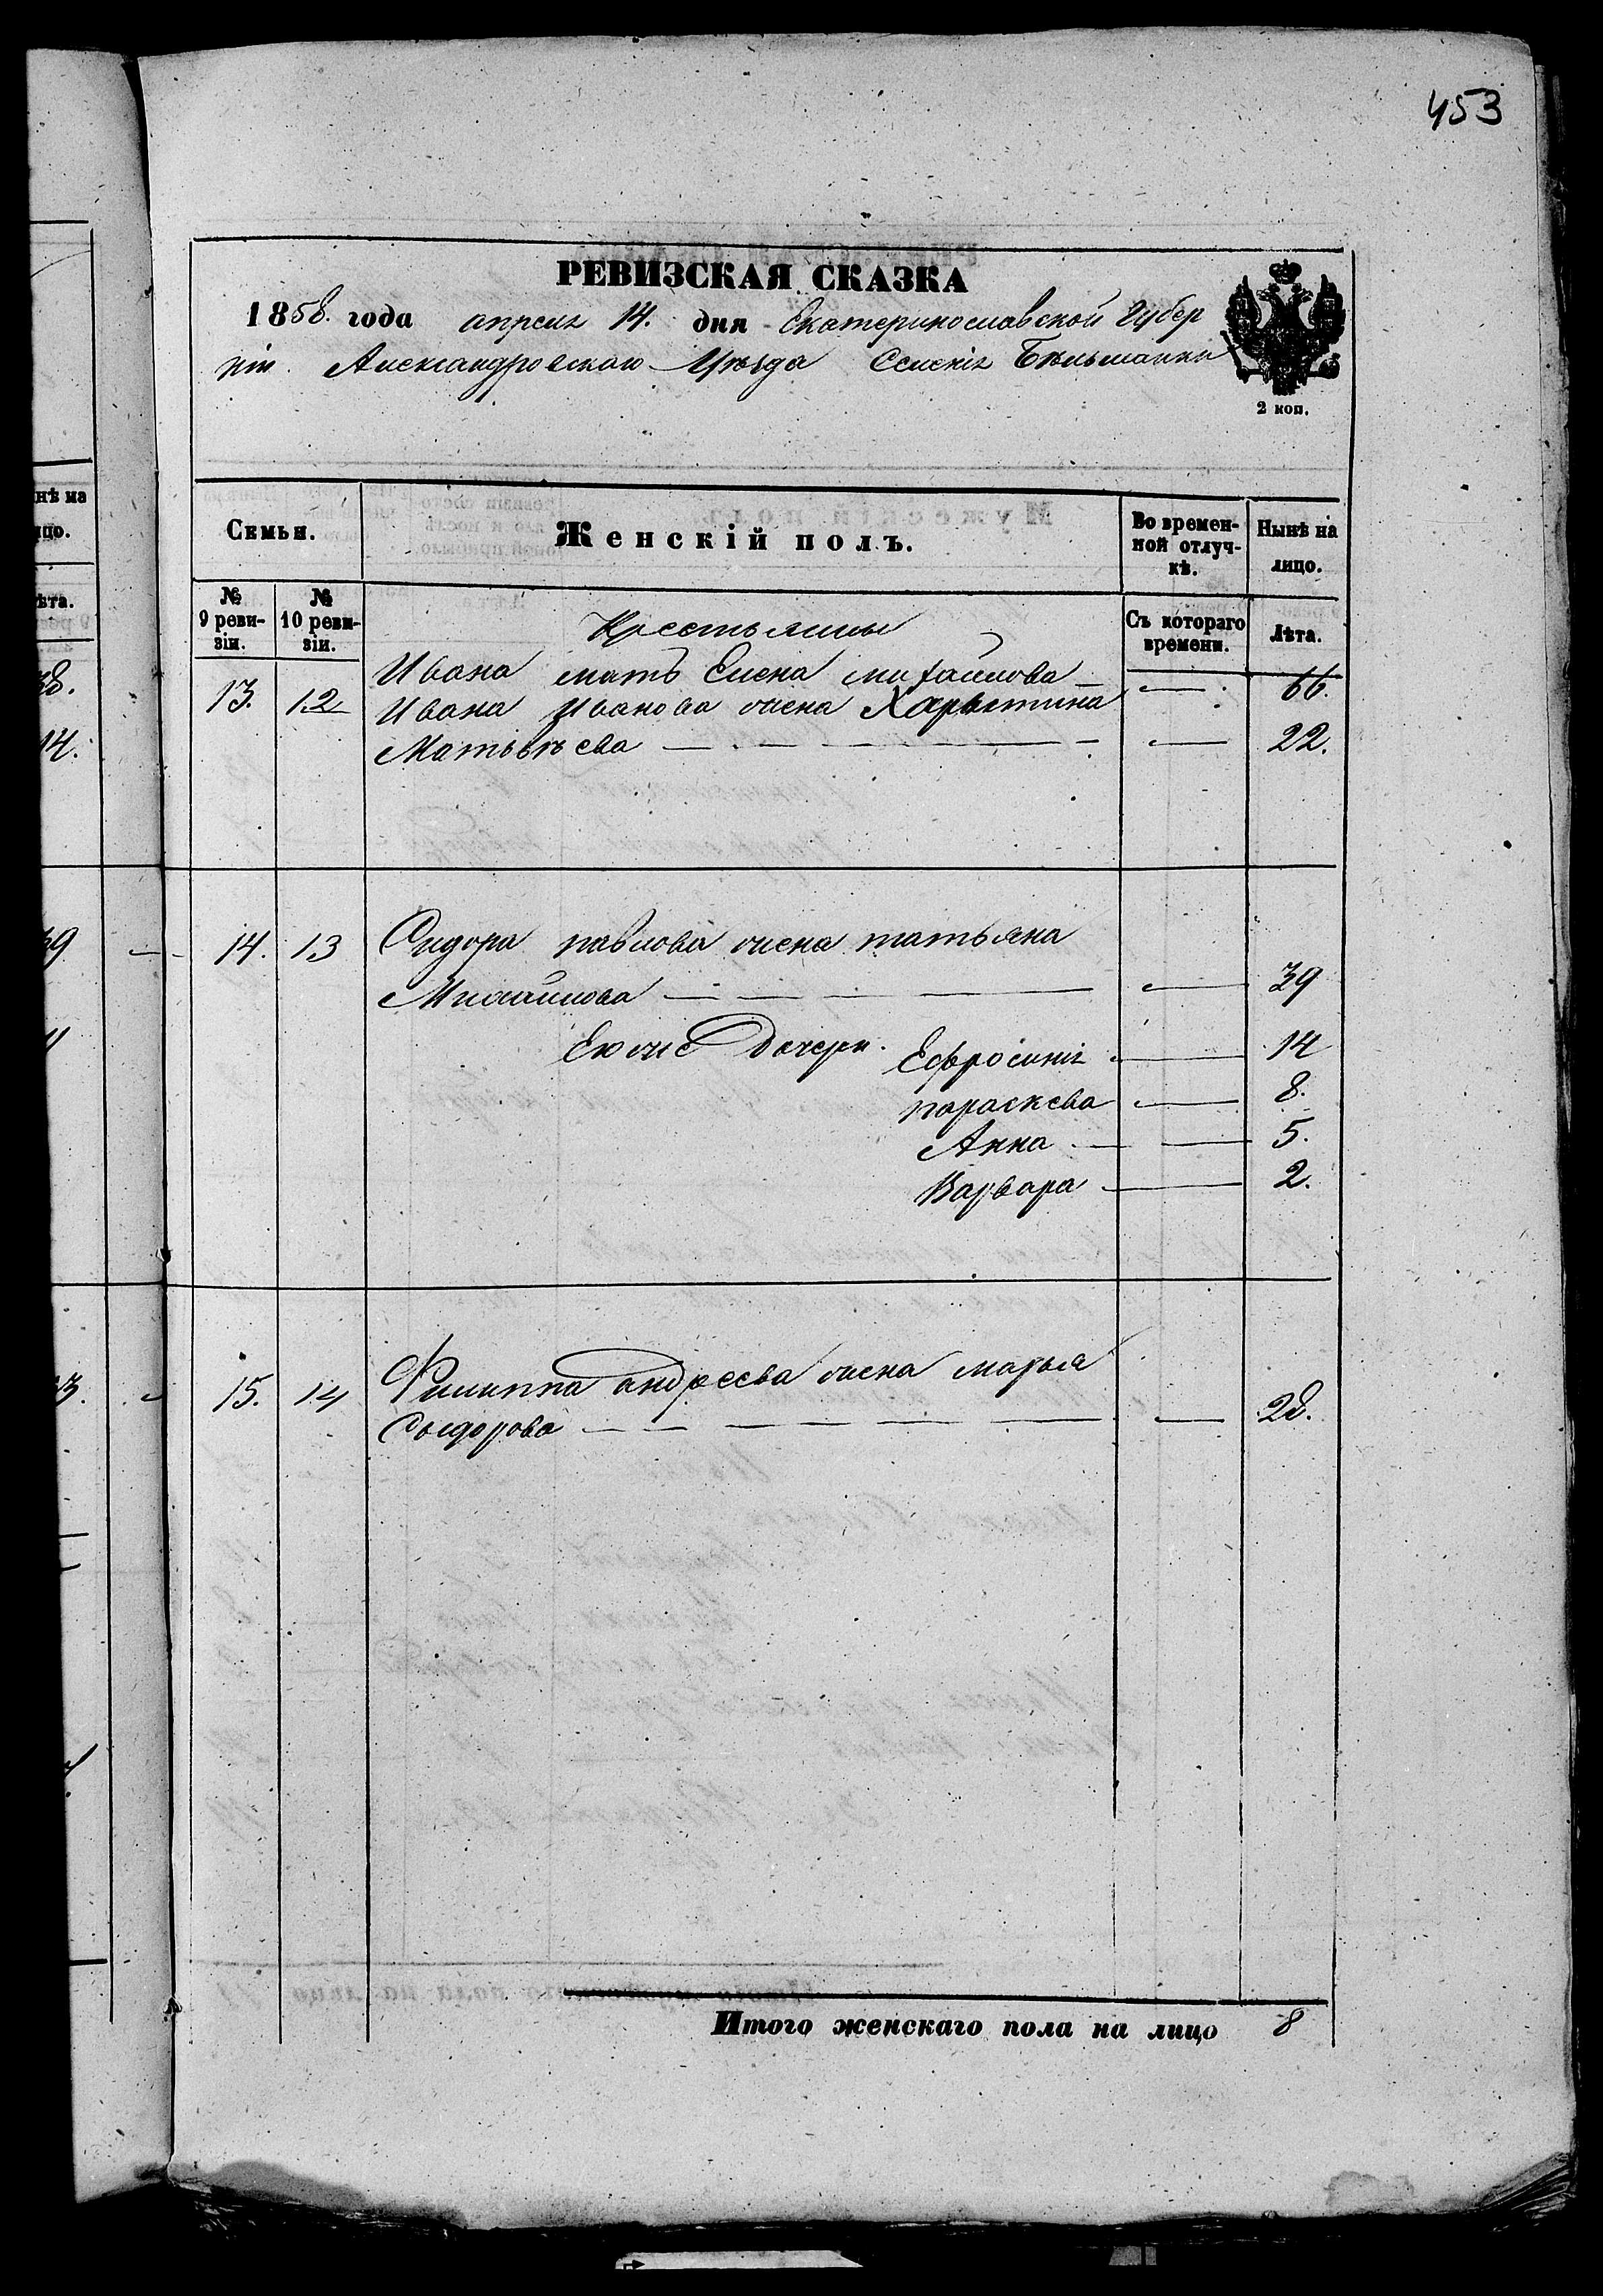 453
РЕВИЗСКАЯ СКАЗКА
1858. года апреля 14. дня Екатеринославской Губер
нiи. Александровскаго Уѣзда Селенiя Бѣльманки
2 коп.
Семьи.
Женскій полъ.
Во времен-
ной отлуч-
кѣ.
Нынѣ на
лицо.
№
9 реви-
зіи.
№
10 реви-
зіи.
Съ котораго
времени.
Лѣта.
Крестьяины
Ивана мать Елена михайлова — 66.
13. 12 Ивана Иванова жена Харытина
Матьвѣева — 22.
14. 13 Сидора павлова жена татьяна
Михайлова — 39
Ея же дочери. Ефросинiя — 14
параскева — 8.
Анна — 5.
Варвара — 2.
15. 14 Филиппа андреева жена марья
Сыдорова — 28.
Итого женскаго пола на лицо 8
нѣ на
лцо.
ѣта.
38.
14.
39
3.